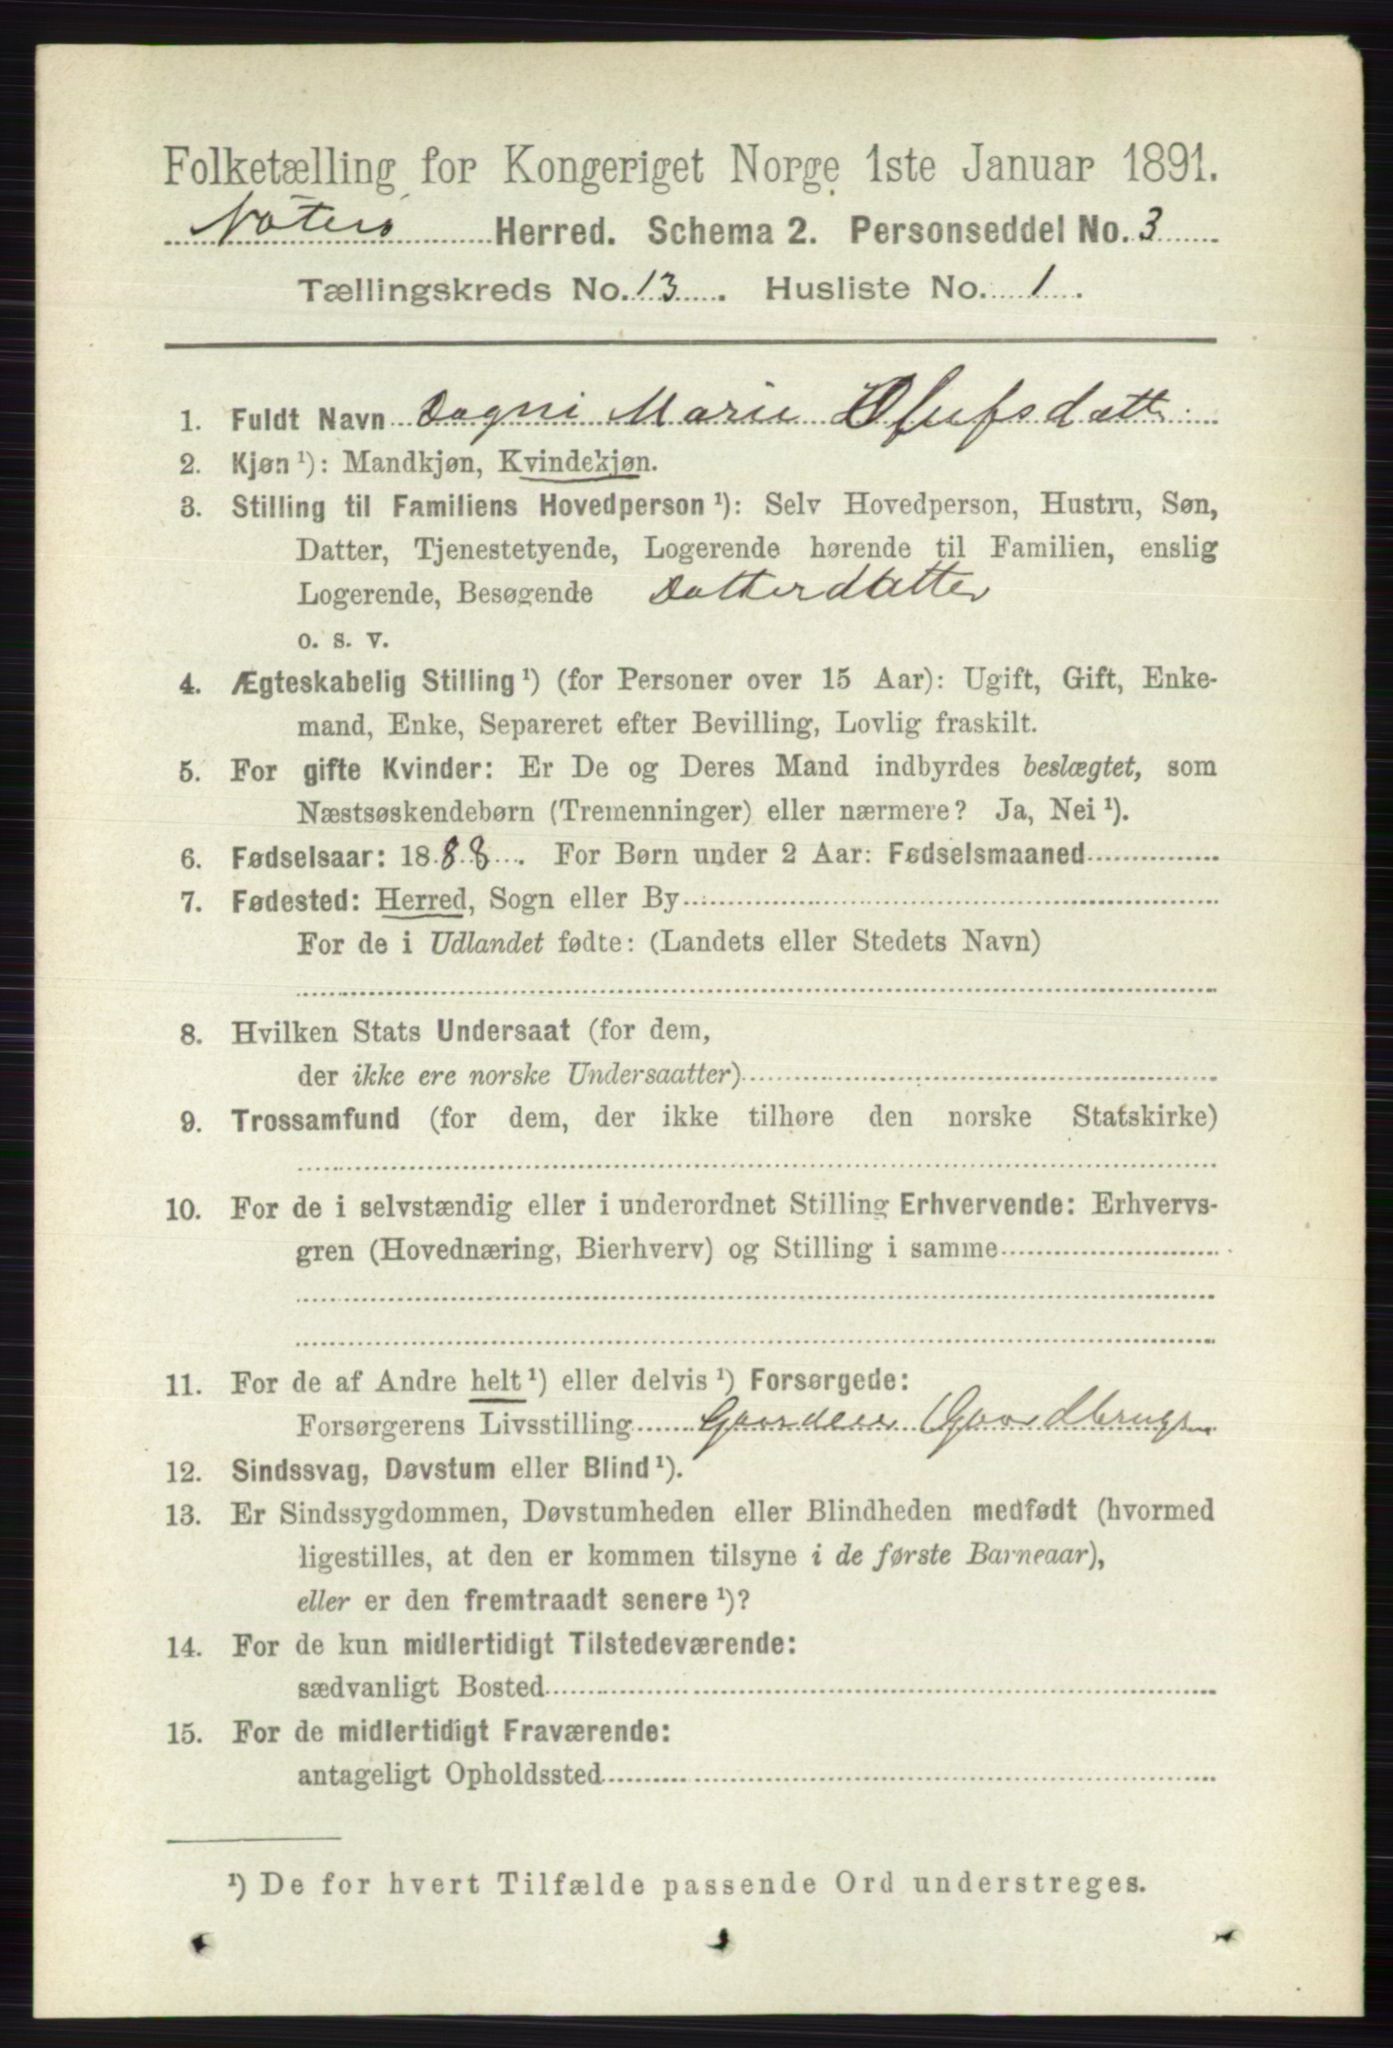 Folketælling for Kongeriget Norge 1ste Januar 1891.
Nøterø Herred. Schema 2. Personseddel No. 3
Tællingskreds No. 13. Husliste No. 1.
1. Fuldt Navn Dagni Marie Olufsdatter
2. Kjøn ¹): Mandkjøn, Kvindekjøn.
3. Stilling til Familiens Hovedperson ¹): Selv Hovedperson, Hustru, Søn,
Datter, Tjenestetyende, Logerende hørende til Familien, enslig
Logerende, Besøgende Datterdatter
o. s. v.
4. Ægteskabelig Stilling ¹) (for Personer over 15 Aar): Ugift, Gift, Enke-
mand, Enke, Separeret efter Bevilling, Lovlig fraskilt.
5. For gifte Kvinder: Er De og Deres Mand indbyrdes beslægtet, som
Næstsøskendebørn (Tremenninger) eller nærmere? Ja, Nei ¹).
6. Fødselsaar: 1888. For Børn under 2 Aar: Fødselsmaaned
7. Fødested: Herred, Sogn eller By
For de i Udlandet fødte: (Landets eller Stedets Navn)
8. Hvilken Stats Undersaat (for dem,
der ikke ere norske Undersaatter)
9. Trossamfund (for dem, der ikke tilhøre den norske Statskirke)
10. For de i selvstændig eller i underordnet Stilling Erhvervende: Erhvervs-
gren (Hovednæring, Bierhverv) og Stilling i samme
11. For de af Andre helt ¹) eller delvis ¹) Forsørgede:
Forsørgerens Livsstilling Gaardeier Gaardbruger
12. Sindssvag, Døvstum eller Blind ¹).
13. Er Sindssygdommen, Døvstumheden eller Blindheden medfødt (hvormed
ligestilles, at den er kommen tilsyne i de første Barneaar),
eller er den fremtraadt senere ¹)?
14. For de kun midlertidigt Tilstedeværende:
sædvanligt Bosted
15. For de midlertidigt Fraværende:
antageligt Opholdssted
¹) De for hvert Tilfælde passende Ord understreges.